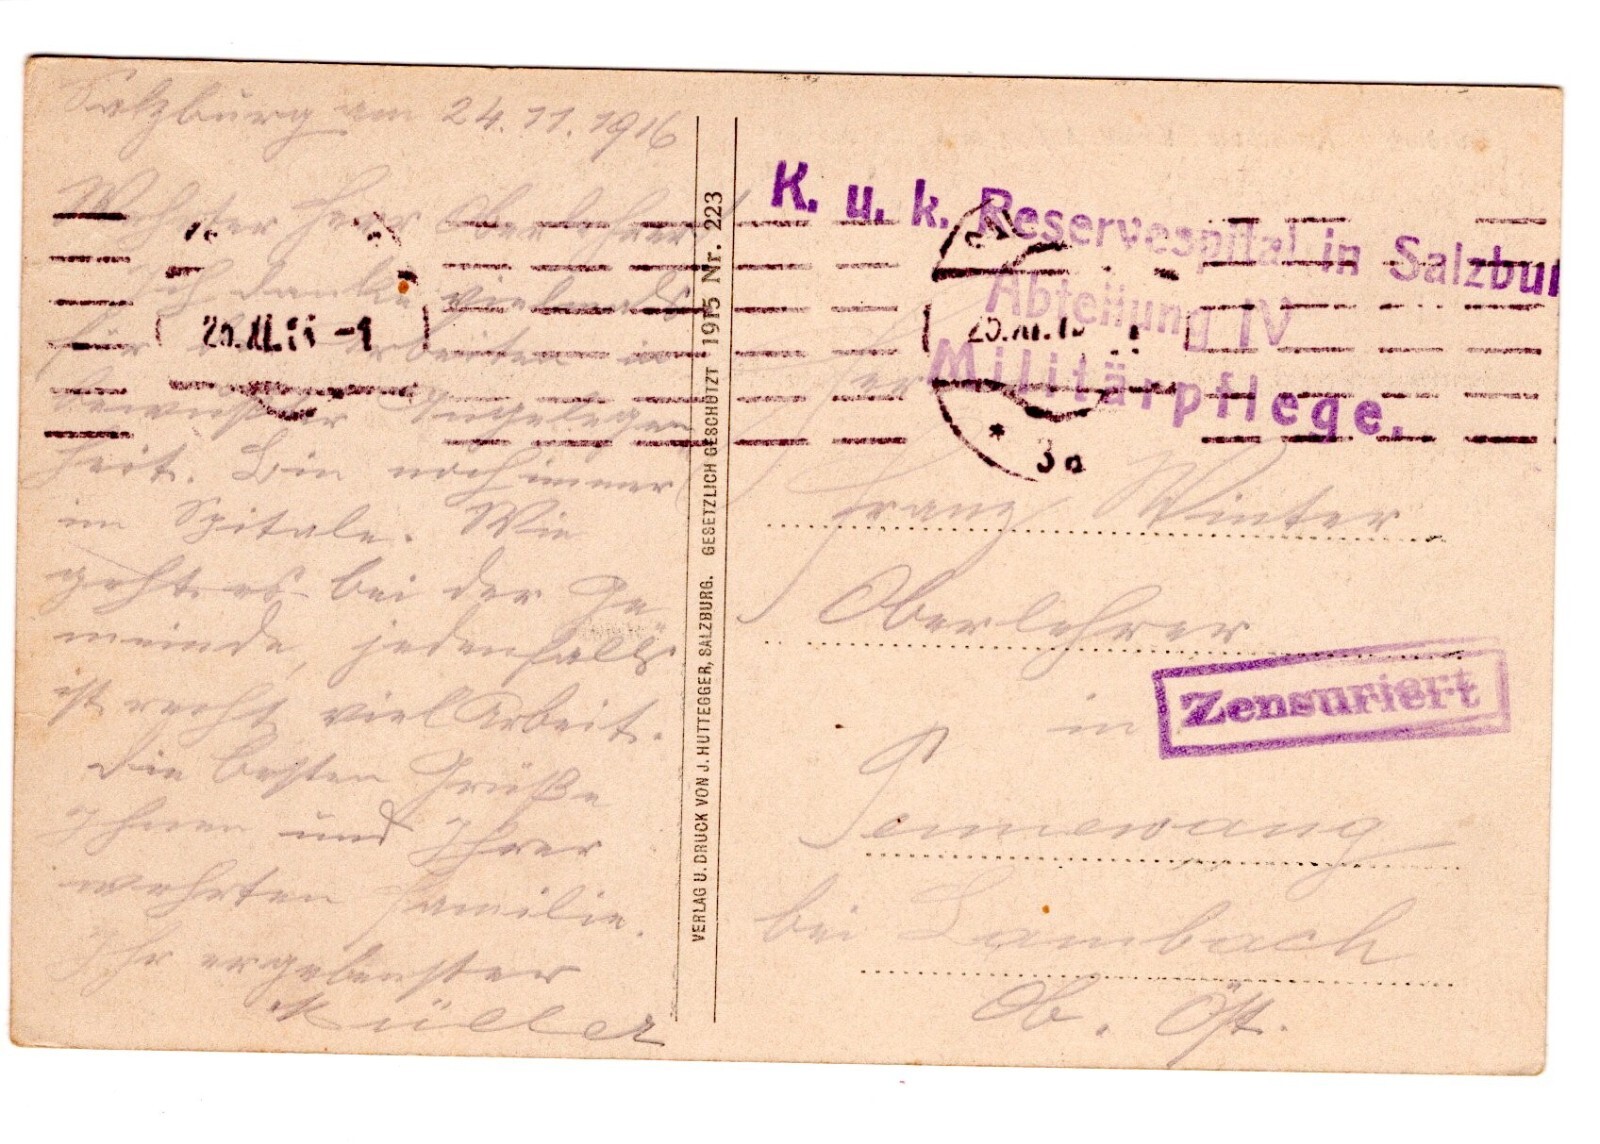 Salzburg am 24.11.1916
Wehrter Herr Oberlehrer
Ich danke vielmals
für arbeiten in
bewußter Angelegen
heit. Bin noch immer
im Spitale. Wie
geht es bei der Ge
meinde, jedenfalls
ist recht viel Arbeit.
Die besten Grüße
Ihnen und Ihrer
wehrten Familie.
Ihr ergebenster
VERLAG U. DRUCK VON J. HUTTEGGER, SALZBURG. GESETZLICH GESCHÜTZT 1915 Nr. 223
K. u. k. Reservespital in Salzbur
Abteilung IV
Militärpflege.
25.XI.16 -1
25.XI.1
* 3a
Herr
Franz Winter
Oberlehrer
in
Zensuriert
Pennewang
bei Lambach
Ob. Öst.